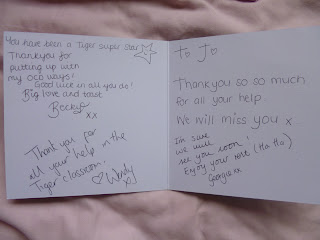 You have been a Tiger super star
Thankyou for
putting up with
my OCD ways!
Good luck in all you do!
Big love and
Becky xx
Thank you for
all your help in the
Tiger classroom!
Wendy
x
To J
Thankyou so so much
for all your help.
We will miss you x
I'm sure
we will
see you soon!
Enjoy your rest (Ha Ha)
Georgia xx